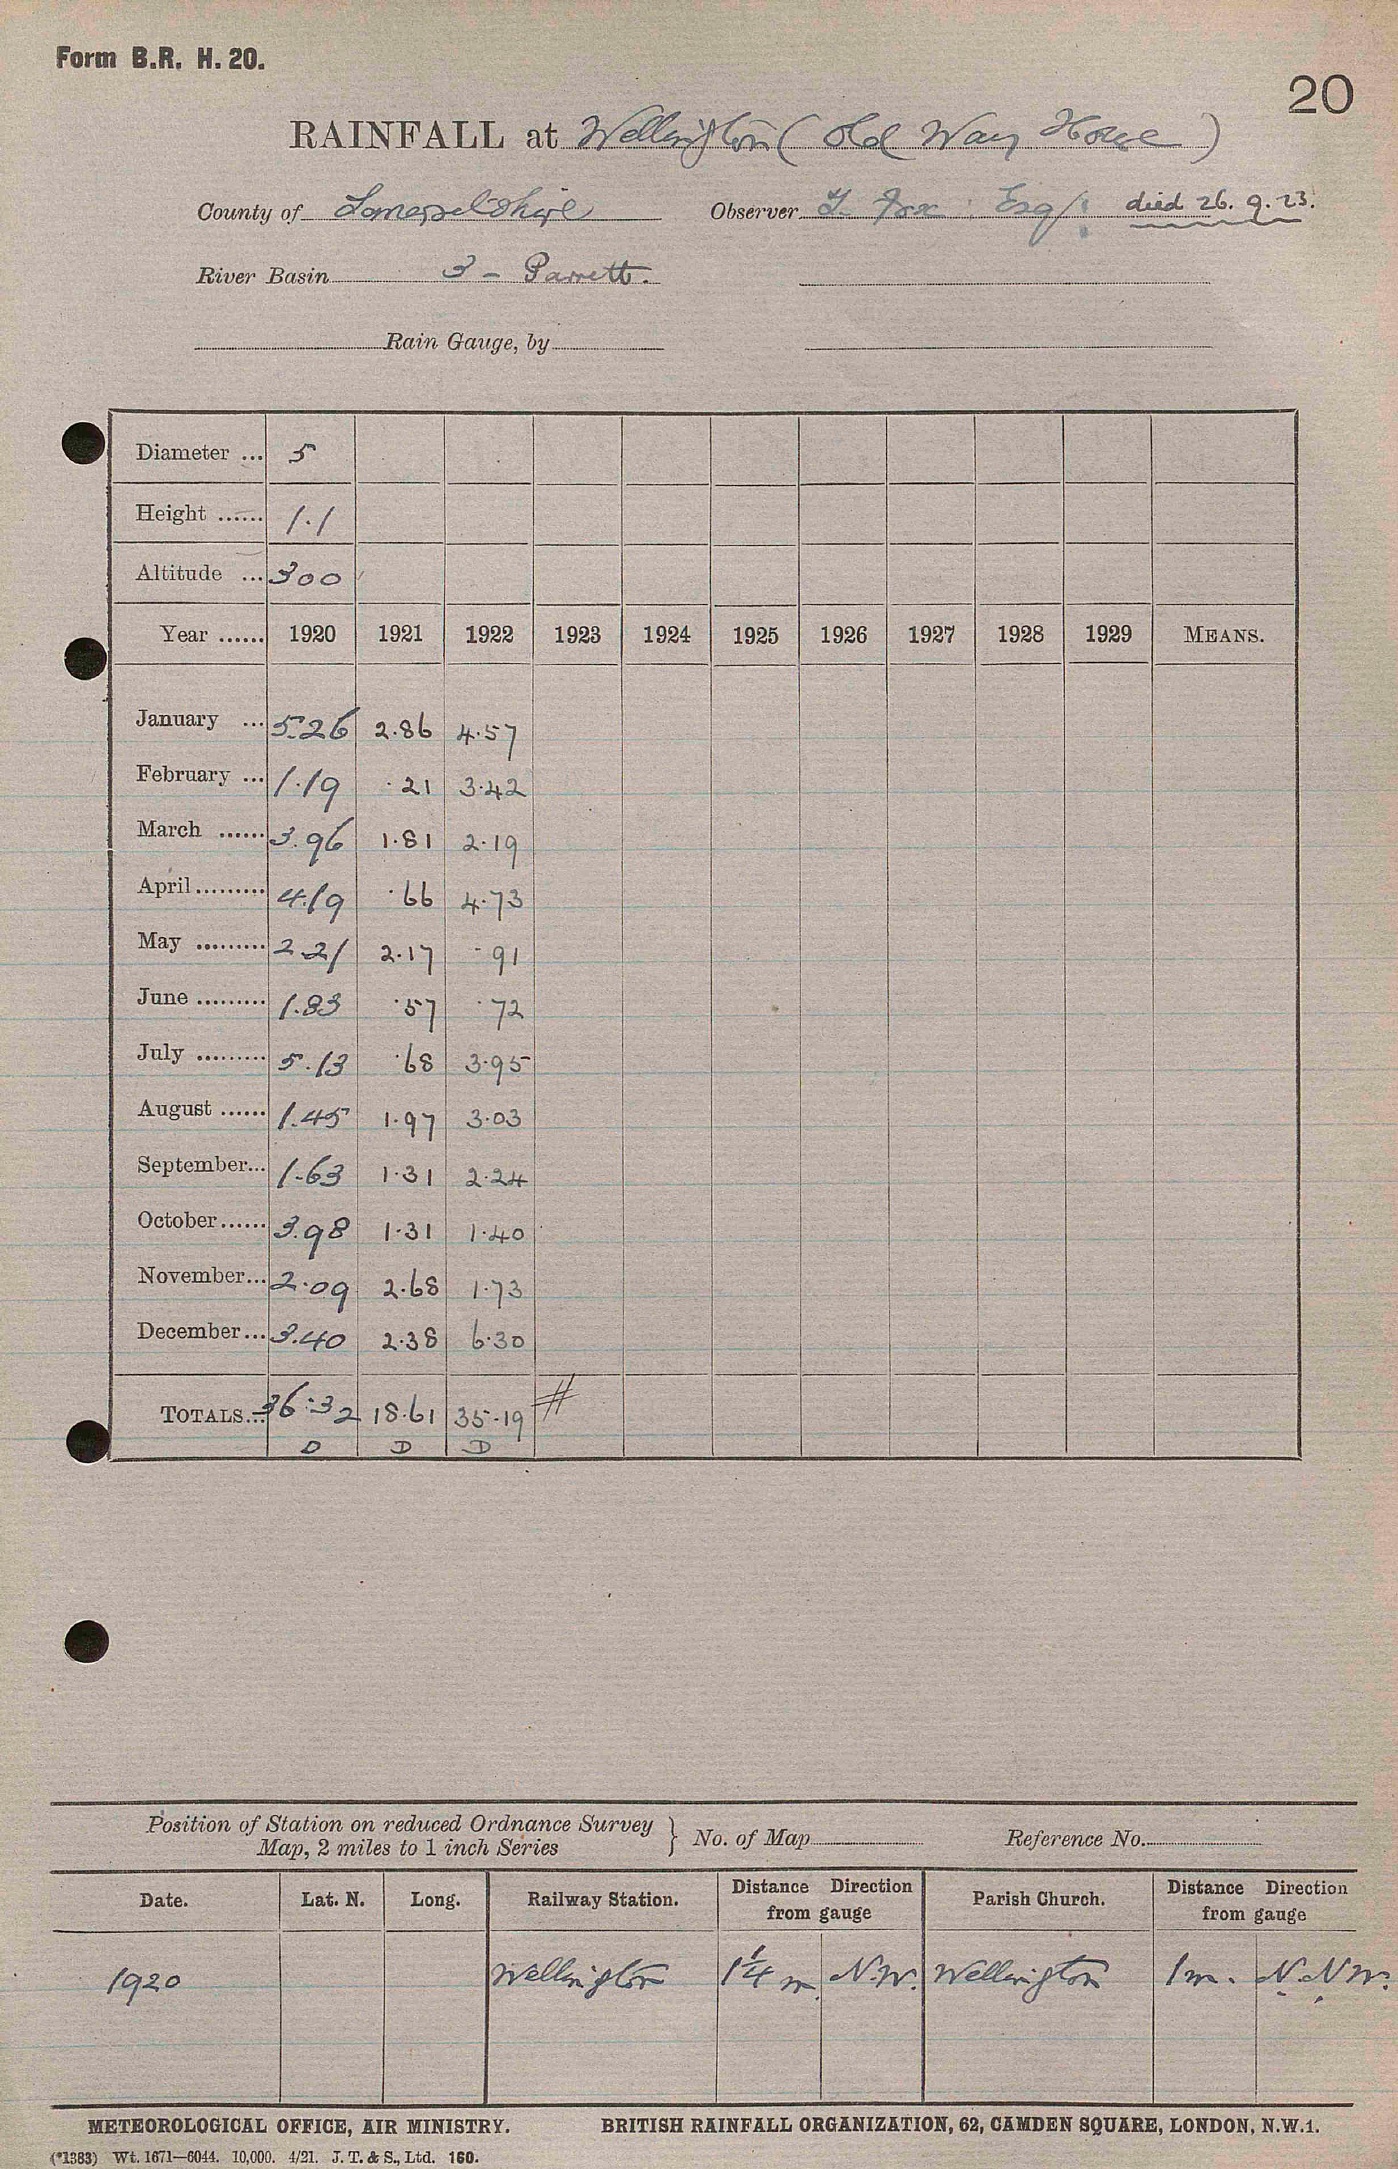 Form B.R. H. 20.
20
RAINFALL at Wellington ( Old Way House )
County of Somersetshire Observer Fox Esq. died 26. 9. 23.
River Basin 3 - Parrett.
Rain Gauge, by
Diameter ... 5
Height ...... 1.1
Altitude ... 300
Year ...... 1920 1921 1922 1923 1924 1925 1926 1927 1928 1929 MEANS.
January ... 5.26 2.86 4.57
February ... 1.19 .21 3.42
March ...... 3.96 1.81 2.19
April ......... 4.19 .66 4.73
May ......... 2.21 2.17 .91
June ......... 1.83 .57 .72
July ......... 5.13 .68 3.95
August ...... 1.45 1.97 3.03
September... 1.63 1.31 2.24
October...... 3.98 1.31 1.40
November... 2.09 2.68 1.73
December... 3.40 2.38 6.30
TOTALS... 36.32 18.61 35.19 #
D D D
Position of Station on reduced Ordnance Survey
Map, 2 miles to 1 inch Series } No. of Map Reference No.
Date. Lat. N. Long. Railway Station. Distance Direction from gauge Parish Church. Distance Direction from gauge
1920 Wellington 1¼ m. N.W. Wellington 1 m. N.N.W.
METEOROLOGICAL OFFICE, AIR MINISTRY. BRITISH RAINFALL ORGANIZATION, 62, CAMDEN SQUARE, LONDON, N.W.1.
(*1383) Wt. 1671—6044. 10,000. 4/21. J. T. & S., Ltd. 160.